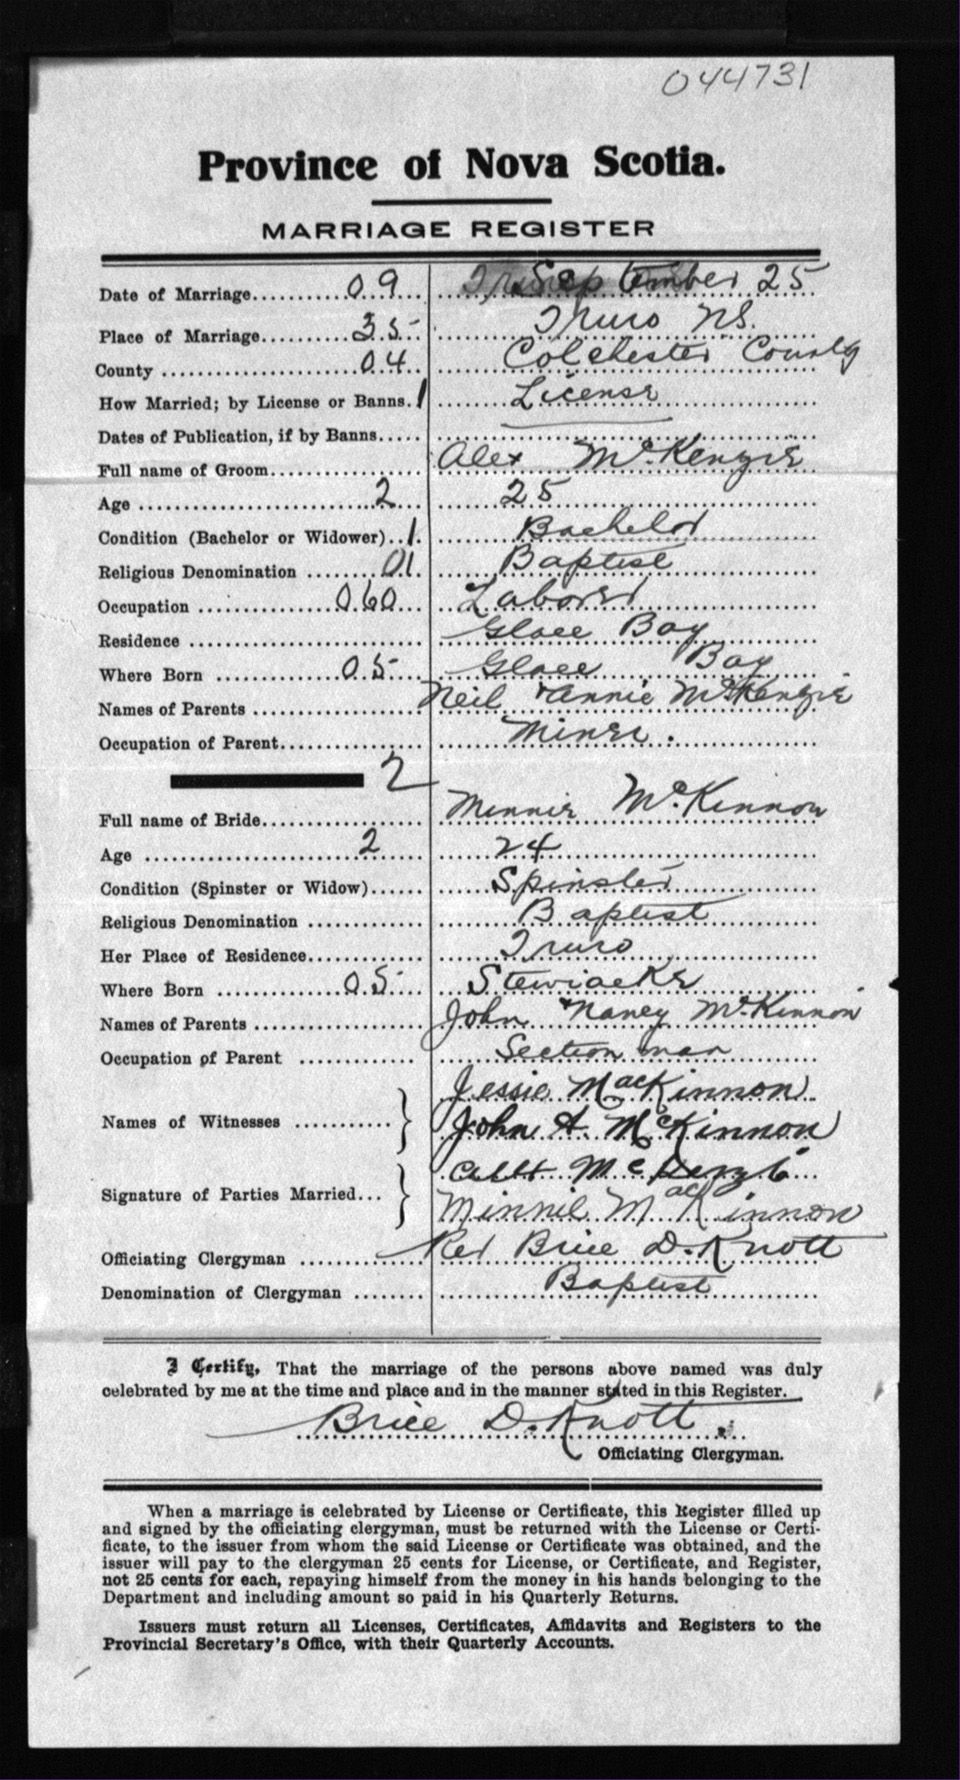 044731
Province of Nova Scotia.
MARRIAGE REGISTER
Date of Marriage..........09... September 25
Place of Marriage..........35... Truro N.S.
County ....................04... Colchester County
How Married; by License or Banns.1 License
Dates of Publication, if by Banns.....
Full name of Groom................ Alex McKenzie
Age ........................2.... 25
Condition (Bachelor or Widower)..1. Bachelor
Religious Denomination .......01. Baptist
Occupation ............060... Laborer
Residence ........................ Glace Bay
Where Born ............05... Glace Bay
Names of Parents ................. Neil & Annie McKenzie
Occupation of Parent................ Miner.
2
Full name of Bride................ Minnie McKinnon
Age ......................2..... 24
Condition (Spinster or Widow)...... Spinster
Religious Denomination ............ Baptist
Her Place of Residence............ Truro
Where Born ............05.... Stewiacke
Names of Parents ................. John & Nancy McKinnon
Occupation of Parent ............. Section man
Names of Witnesses ........... } Jessie MacKinnon
John A. McKinnon
Signature of Parties Married... } McKenzie
Minnie MacKinnon
Officiating Clergyman ............ Rev Brice D. Knott
Denomination of Clergyman ........ Baptist
I Certify, That the marriage of the persons above named was duly
celebrated by me at the time and place and in the manner stated in this Register.
Brice D. Knott
Officiating Clergyman.
When a marriage is celebrated by License or Certificate, this Register filled up
and signed by the officiating clergyman, must be returned with the License or Certi-
ficate, to the issuer from whom the said License or Certificate was obtained, and the
issuer will pay to the clergyman 25 cents for License, or Certificate, and Register,
not 25 cents for each, repaying himself from the money in his hands belonging to the
Department and including amount so paid in his Quarterly Returns.
Issuers must return all Licenses, Certificates, Affidavits and Registers to the
Provincial Secretary's Office, with their Quarterly Accounts.